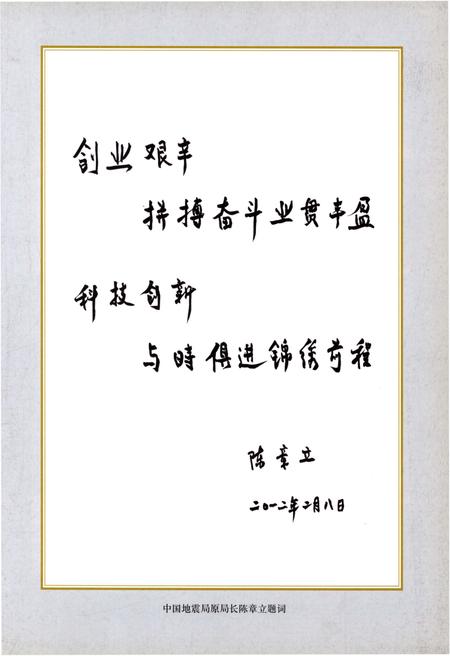 创业艰辛
拼搏奋斗业贯丰盈
科技创新
与時俱进锦绣前程
陈章立
二〇一二年二月八日
中国地震局原局长陈章立题词